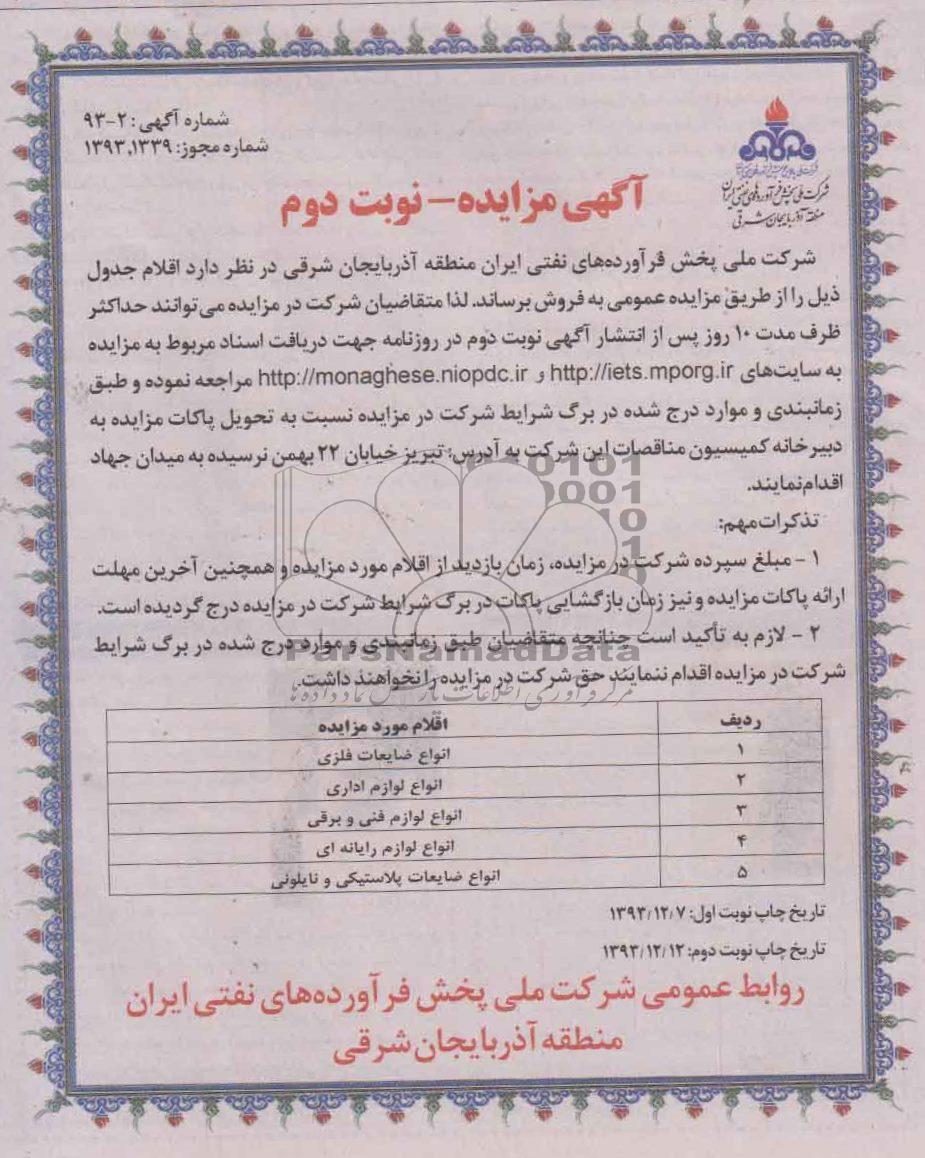 شماره آگهی: ۲-۹۳
شماره مجوز: ۱۳۹۳,۱۳۳۹
شرکت ملی پخش فرآورده‌های نفتی ایران
منطقه آذربایجان شرقی
آگهی مزایده - نوبت دوم
شرکت ملی پخش فرآورده‌های نفتی ایران منطقه آذربایجان شرقی در نظر دارد اقلام جدول
ذیل را از طریق مزایده عمومی به فروش برساند. لذا متقاضیان شرکت در مزایده می‌توانند حداکثر
ظرف مدت ۱۰ روز پس از انتشار آگهی نوبت دوم در روزنامه جهت دریافت اسناد مربوط به مزایده
به سایت‌های http://iets.mporg.ir و http://monaghese.niopdc.ir مراجعه نموده و طبق
زمانبندی و موارد درج شده در برگ شرایط شرکت در مزایده نسبت به تحویل پاکات مزایده به
دبیرخانه کمیسیون مناقصات این شرکت به آدرس: تبریز خیابان ۲۲ بهمن نرسیده به میدان جهاد
اقدام‌نمایند.
تذکرات مهم:
۱ - مبلغ سپرده شرکت در مزایده، زمان بازدید از اقلام مورد مزایده و همچنین آخرین مهلت
ارائه پاکات مزایده و نیز زمان بازگشایی پاکات در برگ شرایط شرکت در مزایده درج گردیده است.
۲ - لازم به تأکید است چنانچه متقاضیان طبق زمانبندی و موارد درج شده در برگ شرایط
شرکت در مزایده اقدام ننمایند حق شرکت در مزایده را نخواهند داشت.
ParsNamadData
مرکز فرآوری اطلاعات پارس نماد داده ها
ردیف اقلام مورد مزایده
۱ انواع ضایعات فلزی
۲ انواع لوازم اداری
۳ انواع لوازم فنی و برقی
۴ انواع لوازم رایانه ای
۵ انواع ضایعات پلاستیکی و نایلونی
تاریخ چاپ نوبت اول: ۱۳۹۳/۱۲/۷
تاریخ چاپ نوبت دوم: ۱۳۹۳/۱۲/۱۲
روابط عمومی شرکت ملی پخش فرآورده‌های نفتی ایران
منطقه آذربایجان شرقی